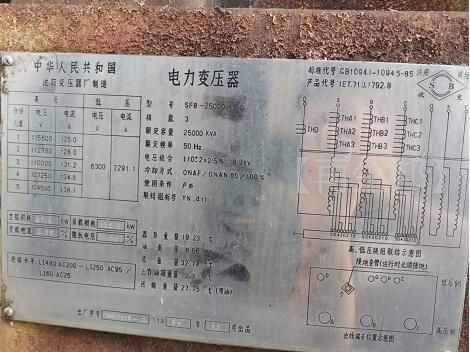 中华人民共和国
沈阳变压器厂制造
电力变压器
标准代号 GB1094.1-1094.5-85
产品代号 1ET.710.1792.8
型号 SF8-25000/
相数 3
额定容量 25000 KVA
额定频率 50 Hz
电压组合 110±2×2.5%/6.3kV
冷却方式 ONAF/ONAN 65/100%
使用条件 户外
联结组标号 YN,d11
分接位置 高压 低压
电压 电流 电压 电流
V A V A
1 115500 125.0
2 112750 128.0
3 110000 131.2 6300 2291.1
4 107250 134.6
5 104500 138.1
空载损耗 kW 负载损耗 kW
空载电流 % 阻抗电压 %
绝缘水平 LI480 AC200-LI250 AC95/
LI60 AC25
器身重量 19.23 t
油重量
总重量
上节油箱重量
运输重量 27.75 t (带油)
出厂序号
月出品
THO THA1 THB1
THA2 THB2
THA3 THB3
高、低压绕组联结示意图
接地套管(运行时必须接地)
低压侧
高压侧
出线端子位置示意图